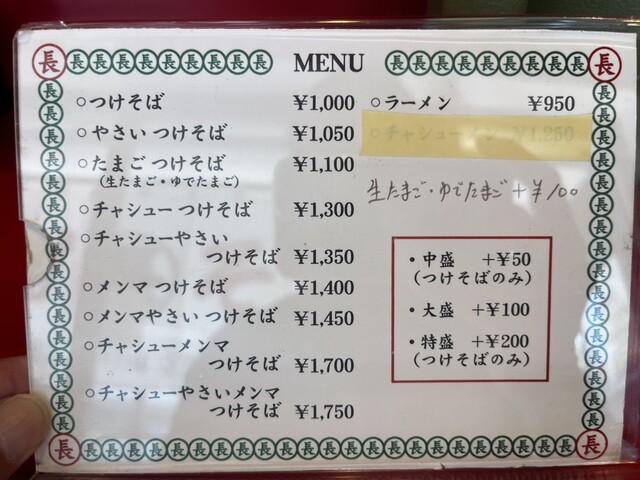 MENU
○つけそば ¥1,000
○やさい つけそば ¥1,050
○たまご つけそば ¥1,100
(生たまご・ゆでたまご)
○チャシュー つけそば ¥1,300
○チャシューやさい
つけそば ¥1,350
○メンマ つけそば ¥1,400
○メンマやさい つけそば ¥1,450
○チャシューメンマ
つけそば ¥1,700
○チャシューやさいメンマ
つけそば ¥1,750
○ラーメン ¥950
○チャシューメン ¥1,250
生たまご・ゆでたまご +¥100
・中盛 +¥50
(つけそばのみ)
・大盛 +¥100
・特盛 +¥200
(つけそばのみ)